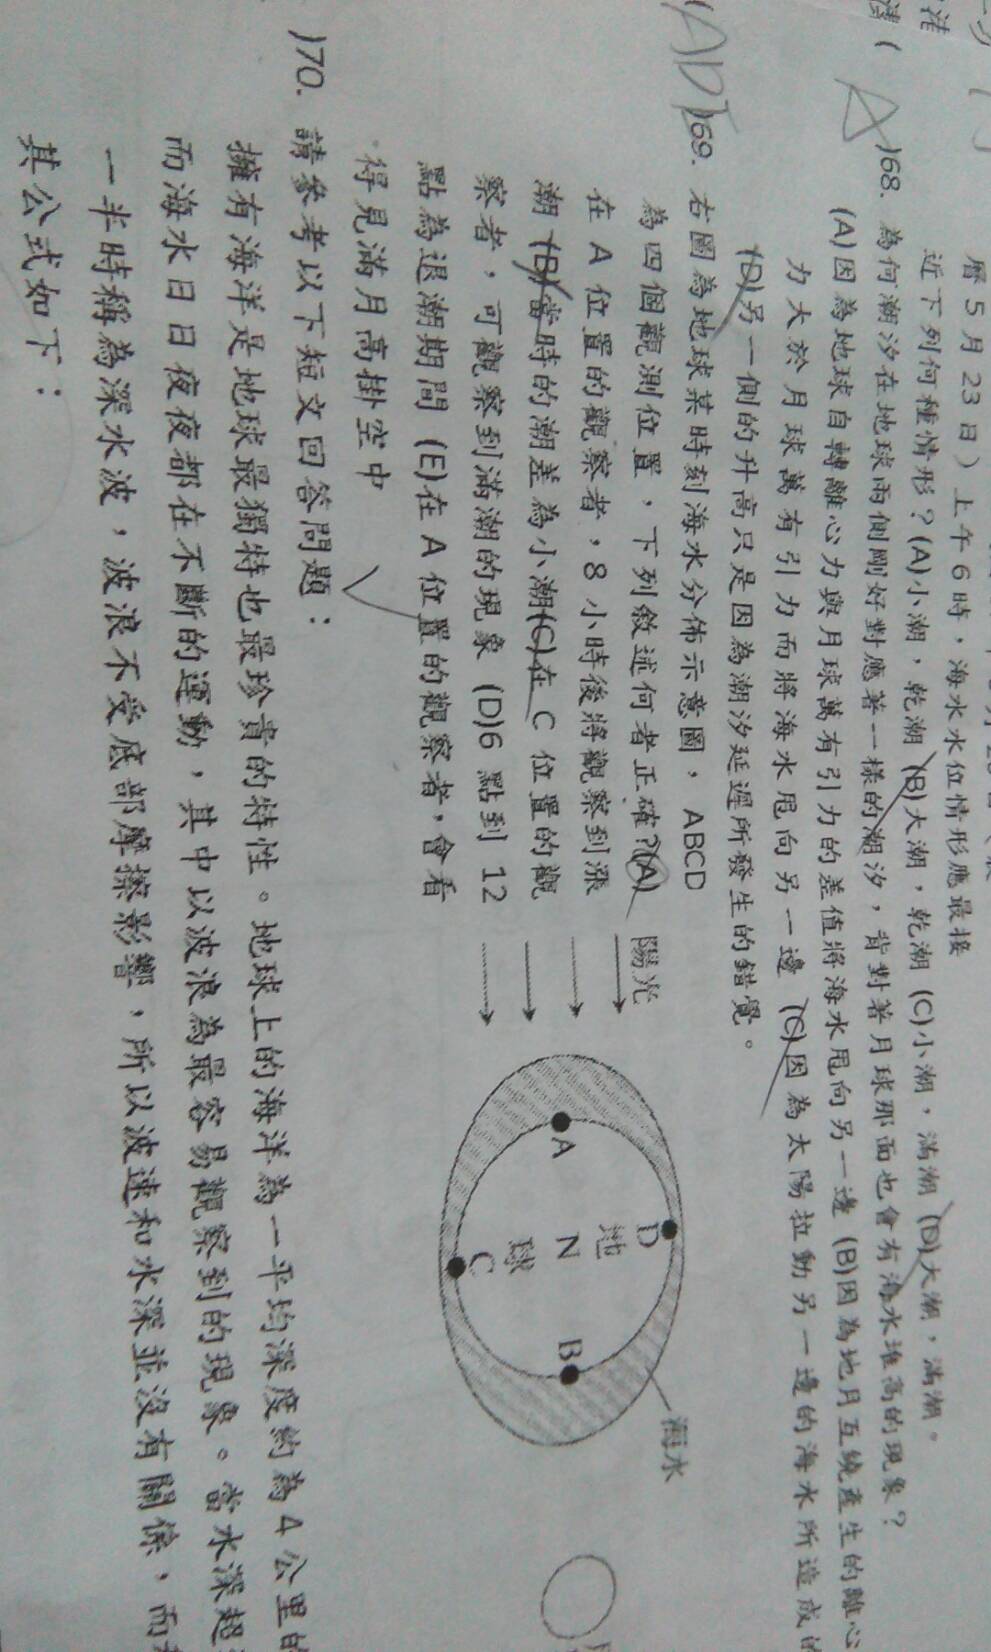 曆5月23日)上午6時，海水水位情形應最接
近下列何種情形？(A)小潮，乾潮 (B)大潮，乾潮 (C)小潮，滿潮 (D)大潮，滿潮。
)68. 為何潮汐在地球兩側剛好對應著一樣的潮汐，背對著月球那面也會有海水堆高的現象？
(A)因為地球自轉離心力與月球萬有引力的差值將海水甩向另一邊 (B)因為地月互繞產生的離心
力大於月球萬有引力而將海水甩向另一邊 (C)因為太陽拉動另一邊的海水所造成的
(D)另一側的升高只是因為潮汐延遲所發生的錯覺。
(AD)69. 右圖為地球某時刻海水分佈示意圖，ABCD
為四個觀測位置，下列敘述何者正確？(A)
在 A 位置的觀察者，8 小時後將觀察到漲
潮 (B)當時的潮差為小潮(C)在 C 位置的觀
察者，可觀察到滿潮的現象 (D)6 點到 12
點為退潮期間 (E)在 A 位置的觀察者，會看
得見滿月高掛空中
陽光
D
地
A
N
B
球
C
海水
)70. 請參考以下短文回答問題：
擁有海洋是地球最獨特也最珍貴的特性。地球上的海洋為一平均深度約為4公里的
而海水日日夜夜都在不斷的運動，其中以波浪為最容易觀察到的現象。當水深超
一半時稱為深水波，波浪不受底部摩擦影響，所以波速和水深並沒有關係，而
其公式如下：